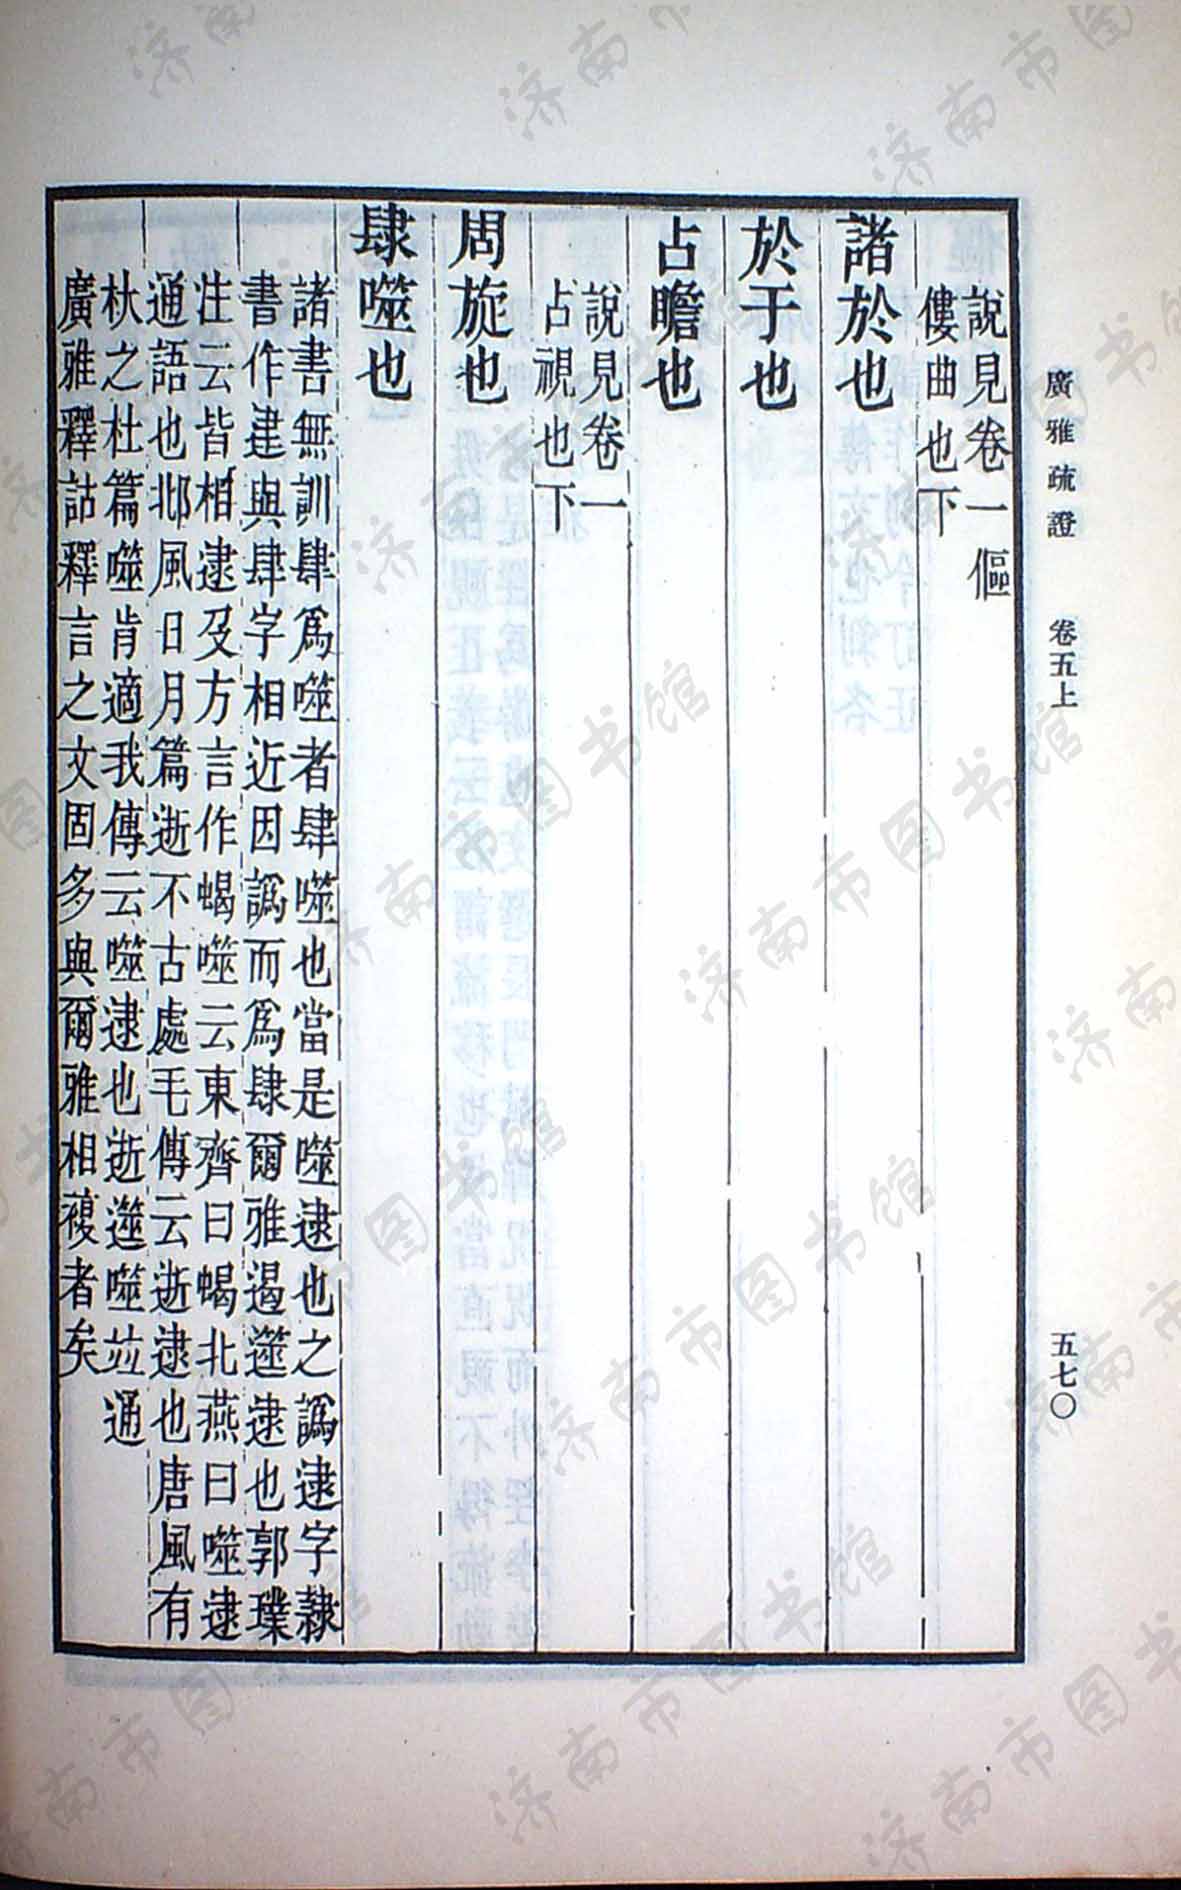 廣雅疏證　卷五上　五七〇
說見卷一傴
僂曲也下
諸於也
於于也
占瞻也
說見卷一
占視也下
周旋也
肆噬也
諸書無訓肆爲噬者肆噬也當是噬逮也之譌逮字隸
書作逮與肆字相近因譌而爲肆爾雅遏遾逮也郭璞
注云皆相逮及方言作蝎噬云東齊曰蝎北燕曰噬逮
通語也邶風日月篇逝不古處毛傳云逝逮也唐風有
杕之杜篇噬肯適我傳云噬逮也逝遾噬竝通
廣雅釋詁釋言之文固多與爾雅相複者矣
济南市图书馆